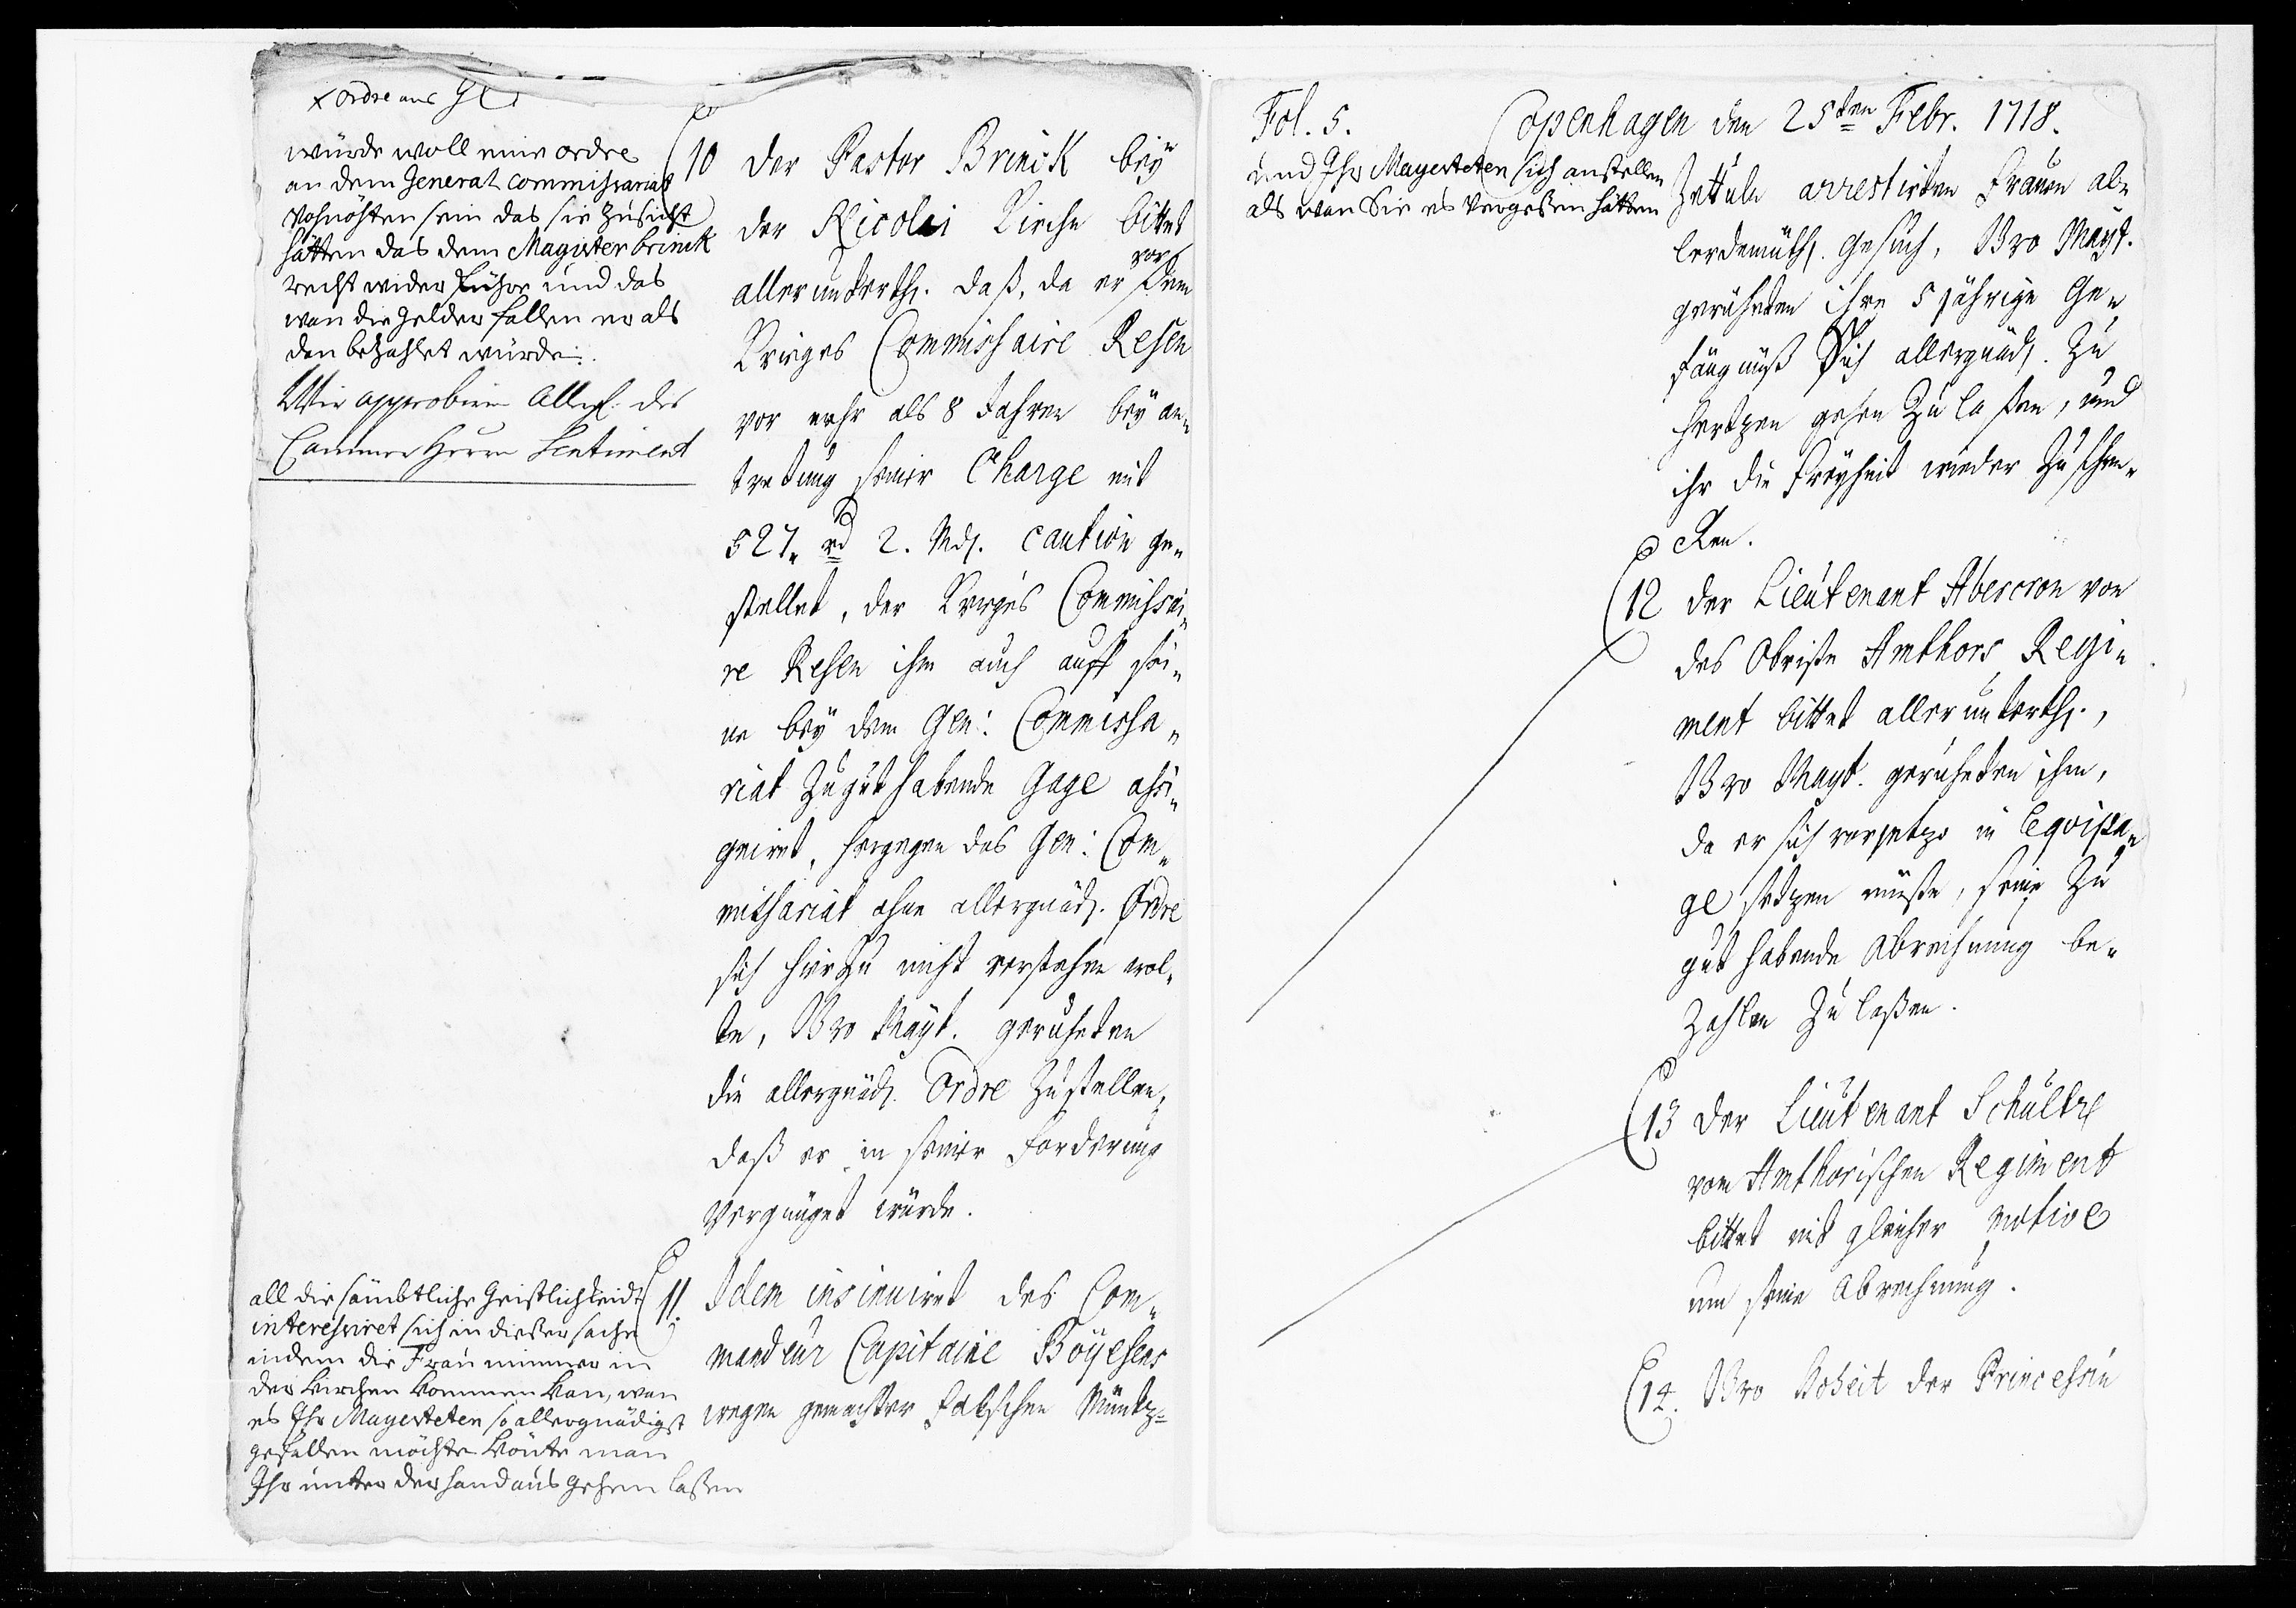 x ordre ans
würde woll eine ordre
an dem General commissariat
vohnöhten sein das sie zusicht
hätten das dem Magister brinck
recht wider führe und das
wan die gelder fallen er als
dan bezahlet würde.
Wir approbiren Allergn. des
Cammer Herrn Sentiment
10 Der Pastor Brinck beÿ
der Nicolai Kirche bittet
allerunterth. daß, da er vor dem
Krieges Commissaire Resen
vor mehr als 8 Jahren beÿ an„
tretung seiner Charge mit
527. rd 2. Mds. caution ge„
stellet, der Krieges Commissai„
re Resen ihm auch auff sei„
ne beÿ dem Gen: Commissa„
riat zugut habende Gage assi„
gniret, hergegen das Gen: Com„
missariat ohne allergnäds. Ordre
sich hierzu nicht verstehen wol„
te, Ewr Maÿt. geruheten
die allergnäds. Ordre zustellen,
daß er in seiner Forderung
vergnüget würde.
all die sämbtliche Geistlichkeidt
interessiret sich in dieser sache
indem die Frau nimmer in
der Kirchen kommen kan, wan
es Ihr Mayesteten so allergnädigst
gefallen möchte könte man
Ihr unter der hand aus gehen lassen
11. Idem insinuiret des Com„
mandeur Capitaine Böÿesens
wegen gemachter falschen Müntz=
Fol. 5. Copenhagen den 25ten Febr. 1718.
und Ihr Mayesteten sich anstellen
als wan Sie es vergessen hätten
Zettuln arrestirten Frauen al„
lerdemüths. Gesuch, Ewr Maÿt.
geruheten ihre 5 jährige Ge„
fängnüß Sich allergnäds. zu
Hertzen gehen zu laßen, und
ihr die Freÿheit wieder zu schen„
cken.
12 Der Lieutenant Abercron von
des Obristen Amthors Regi„
ment bittet allerunterth.,
Ewr Maÿt. geruheten ihm,
da er sich vorjetzo in Equipa„
ge setzen müste, seine zu
gut habende Abrechnung be„
zahlen zu laßen.
13 Der Lieutenant Schultze
vom Amthorischen Regiment
bittet mit gleicher motive
um seine Abrechnung.
14. Ewr Hoheit der Princessin